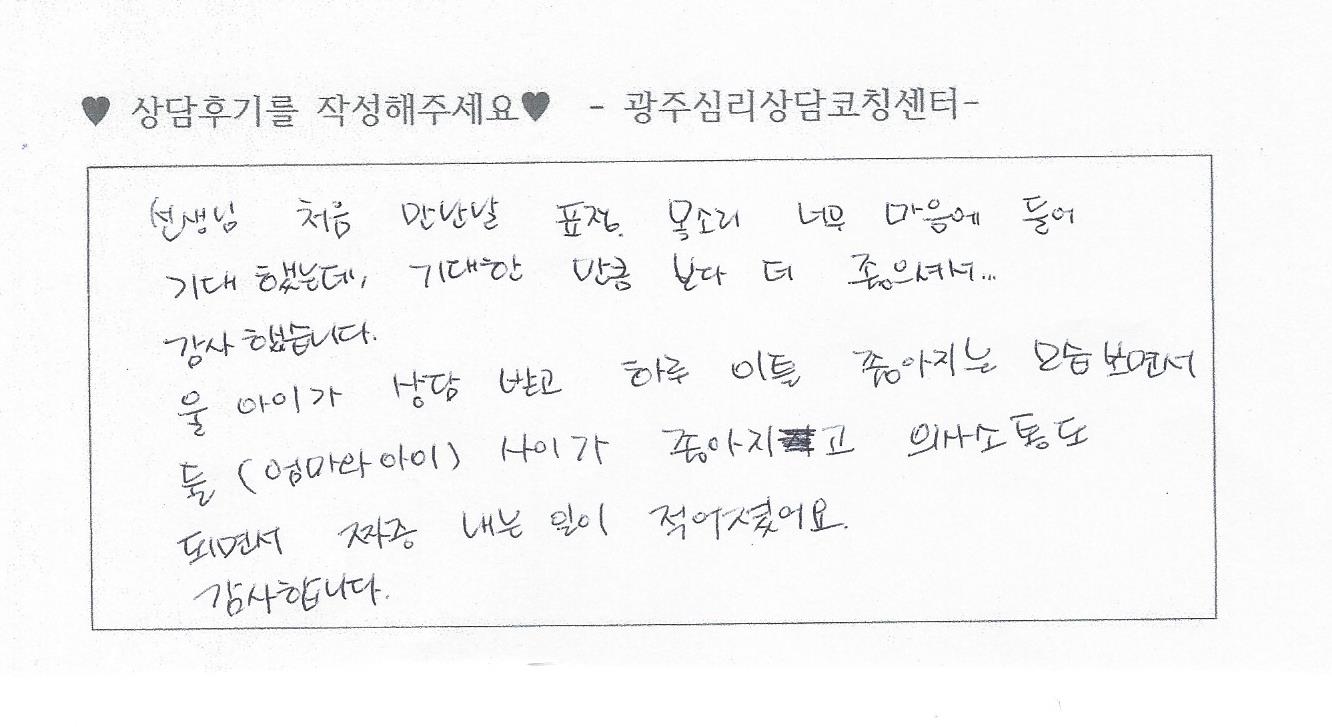 ♥ 상담후기를 작성해주세요♥ - 광주심리상담코칭센터-
선생님 처음 만난날 표정. 목소리 너무 마음에 들어
기대 했는데, 기대한 만큼 보다 더 좋으셔서...
감사 했습니다.
울 아이가 상담 받고 하루 이틀 좋아지는 모습 보면서
둘 (엄마와 아이) 사이가 좋아지고 의사소통도
되면서 짜증 내는 일이 적어졌어요.
감사합니다.